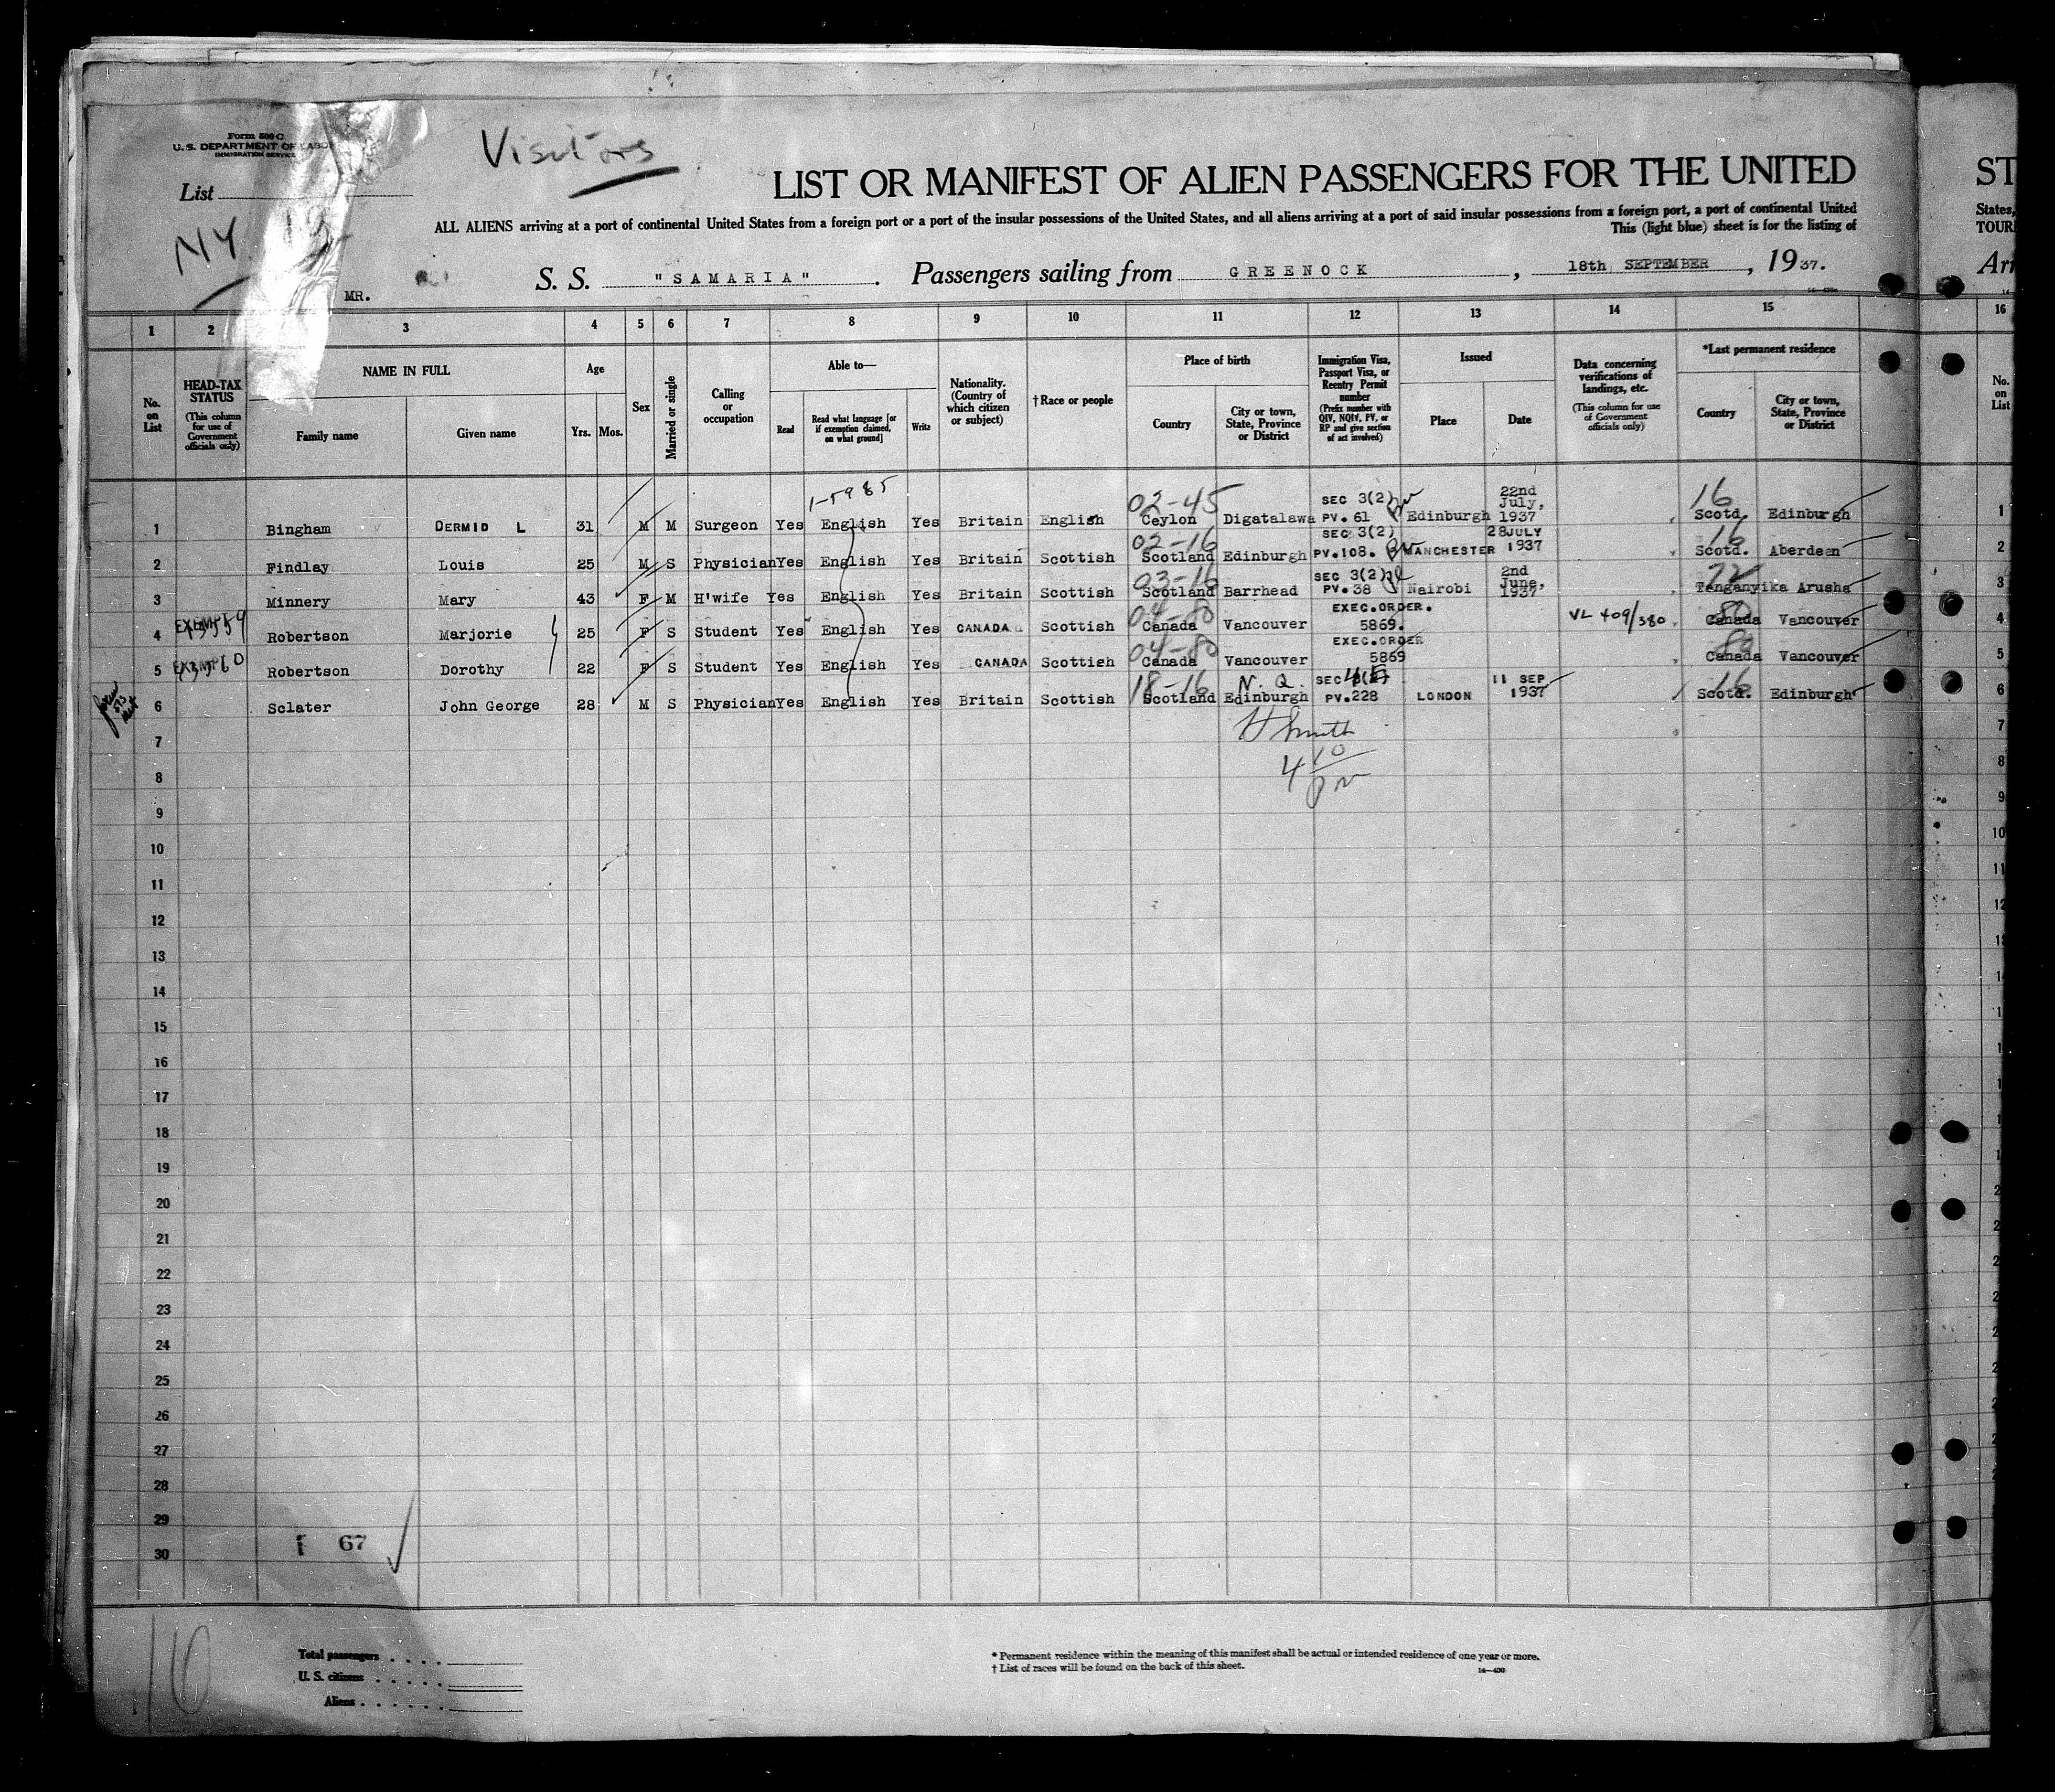 Form 500 C
U. S. DEPARTMENT OF LABOR
IMMIGRATION SERVICE
Visitors
List
NY 13
LIST OR MANIFEST OF ALIEN PASSENGERS FOR THE UNITED
ST
ALL ALIENS arriving at a port of continental United States from a foreign port or a port of the insular possessions of the United States, and all aliens arriving at a port of said insular possessions from a foreign port, a port of continental United
States,
This (light blue) sheet is for the listing of
TOUR
S. S. "SAMARIA". Passengers sailing from GREENOCK, 18th SEPTEMBER, 1937.
Arr
MR.
1 2 3 4 5 6 7 8 9 10 11 12 13 14 15 16
No. on List
HEAD-TAX STATUS
(This column for use of Government officials only)
NAME IN FULL
Family name
Given name
Age
Yrs. Mos.
Sex
Married or single
Calling or occupation
Able to—
Read
Read what language [or if exemption claimed, on what ground]
Write
Nationality. (Country of which citizen or subject)
†Race or people
Place of birth
Country
City or town, State, Province or District
Immigration Visa, Passport Visa, or Reentry Permit number
(Prefix number with QIV, NQIV, PV, or RP and give section of act involved)
Issued
Place
Date
Data concerning verifications of landings, etc.
(This column for use of Government officials only)
*Last permanent residence
Country
City or town, State, Province or District
No. on List
1-5985
02-45
SEC 3(2)
22nd July,
16
1 Bingham DERMID L 31 M M Surgeon Yes English Yes Britain English Ceylon Digatalawa PV. 61 Edinburgh 1937 Scotd. Edinburgh 1
02-16
SEC 3(2)
28JULY
16
2 Findlay Louis 25 M S Physician Yes English Yes Britain Scottish Scotland Edinburgh PV.108. MANCHESTER 1937 Scotd. Aberdeen 2
03-16
SEC 3(2)
2nd June,
72
3 Minnery Mary 43 F M H'wife Yes English Yes Britain Scottish Scotland Barrhead PV.38 Nairobi 1937 Tanganyika Arusha 3
EXEMPT
04-80
EXEC.ORDER.
80
4 Robertson Marjorie 25 F S Student Yes English Yes CANADA Scottish Canada Vancouver 5869. VL 409/380 Canada Vancouver 4
EXEMPT
04-80
EXEC.ORDER
80
5 Robertson Dorothy 22 F S Student Yes English Yes CANADA Scottish Canada Vancouver 5869 Canada Vancouver 5
18-16
N. Q.
SEC
11 SEP
16
6 Sclater John George 28 M S Physician Yes English Yes Britain Scottish Scotland Edinburgh PV.228 LONDON 1937 Scotd. Edinburgh 6
7 Smith 7
8 4 10 pm 8
9 9
10 10
11 11
12 12
13
14
15
16
17
18
19
20
21
22
23
24
25
26
27
28
29
67
30
Total passengers
U. S. citizens
Aliens
* Permanent residence within the meaning of this manifest shall be actual or intended residence of one year or more.
† List of races will be found on the back of this sheet.
14—430